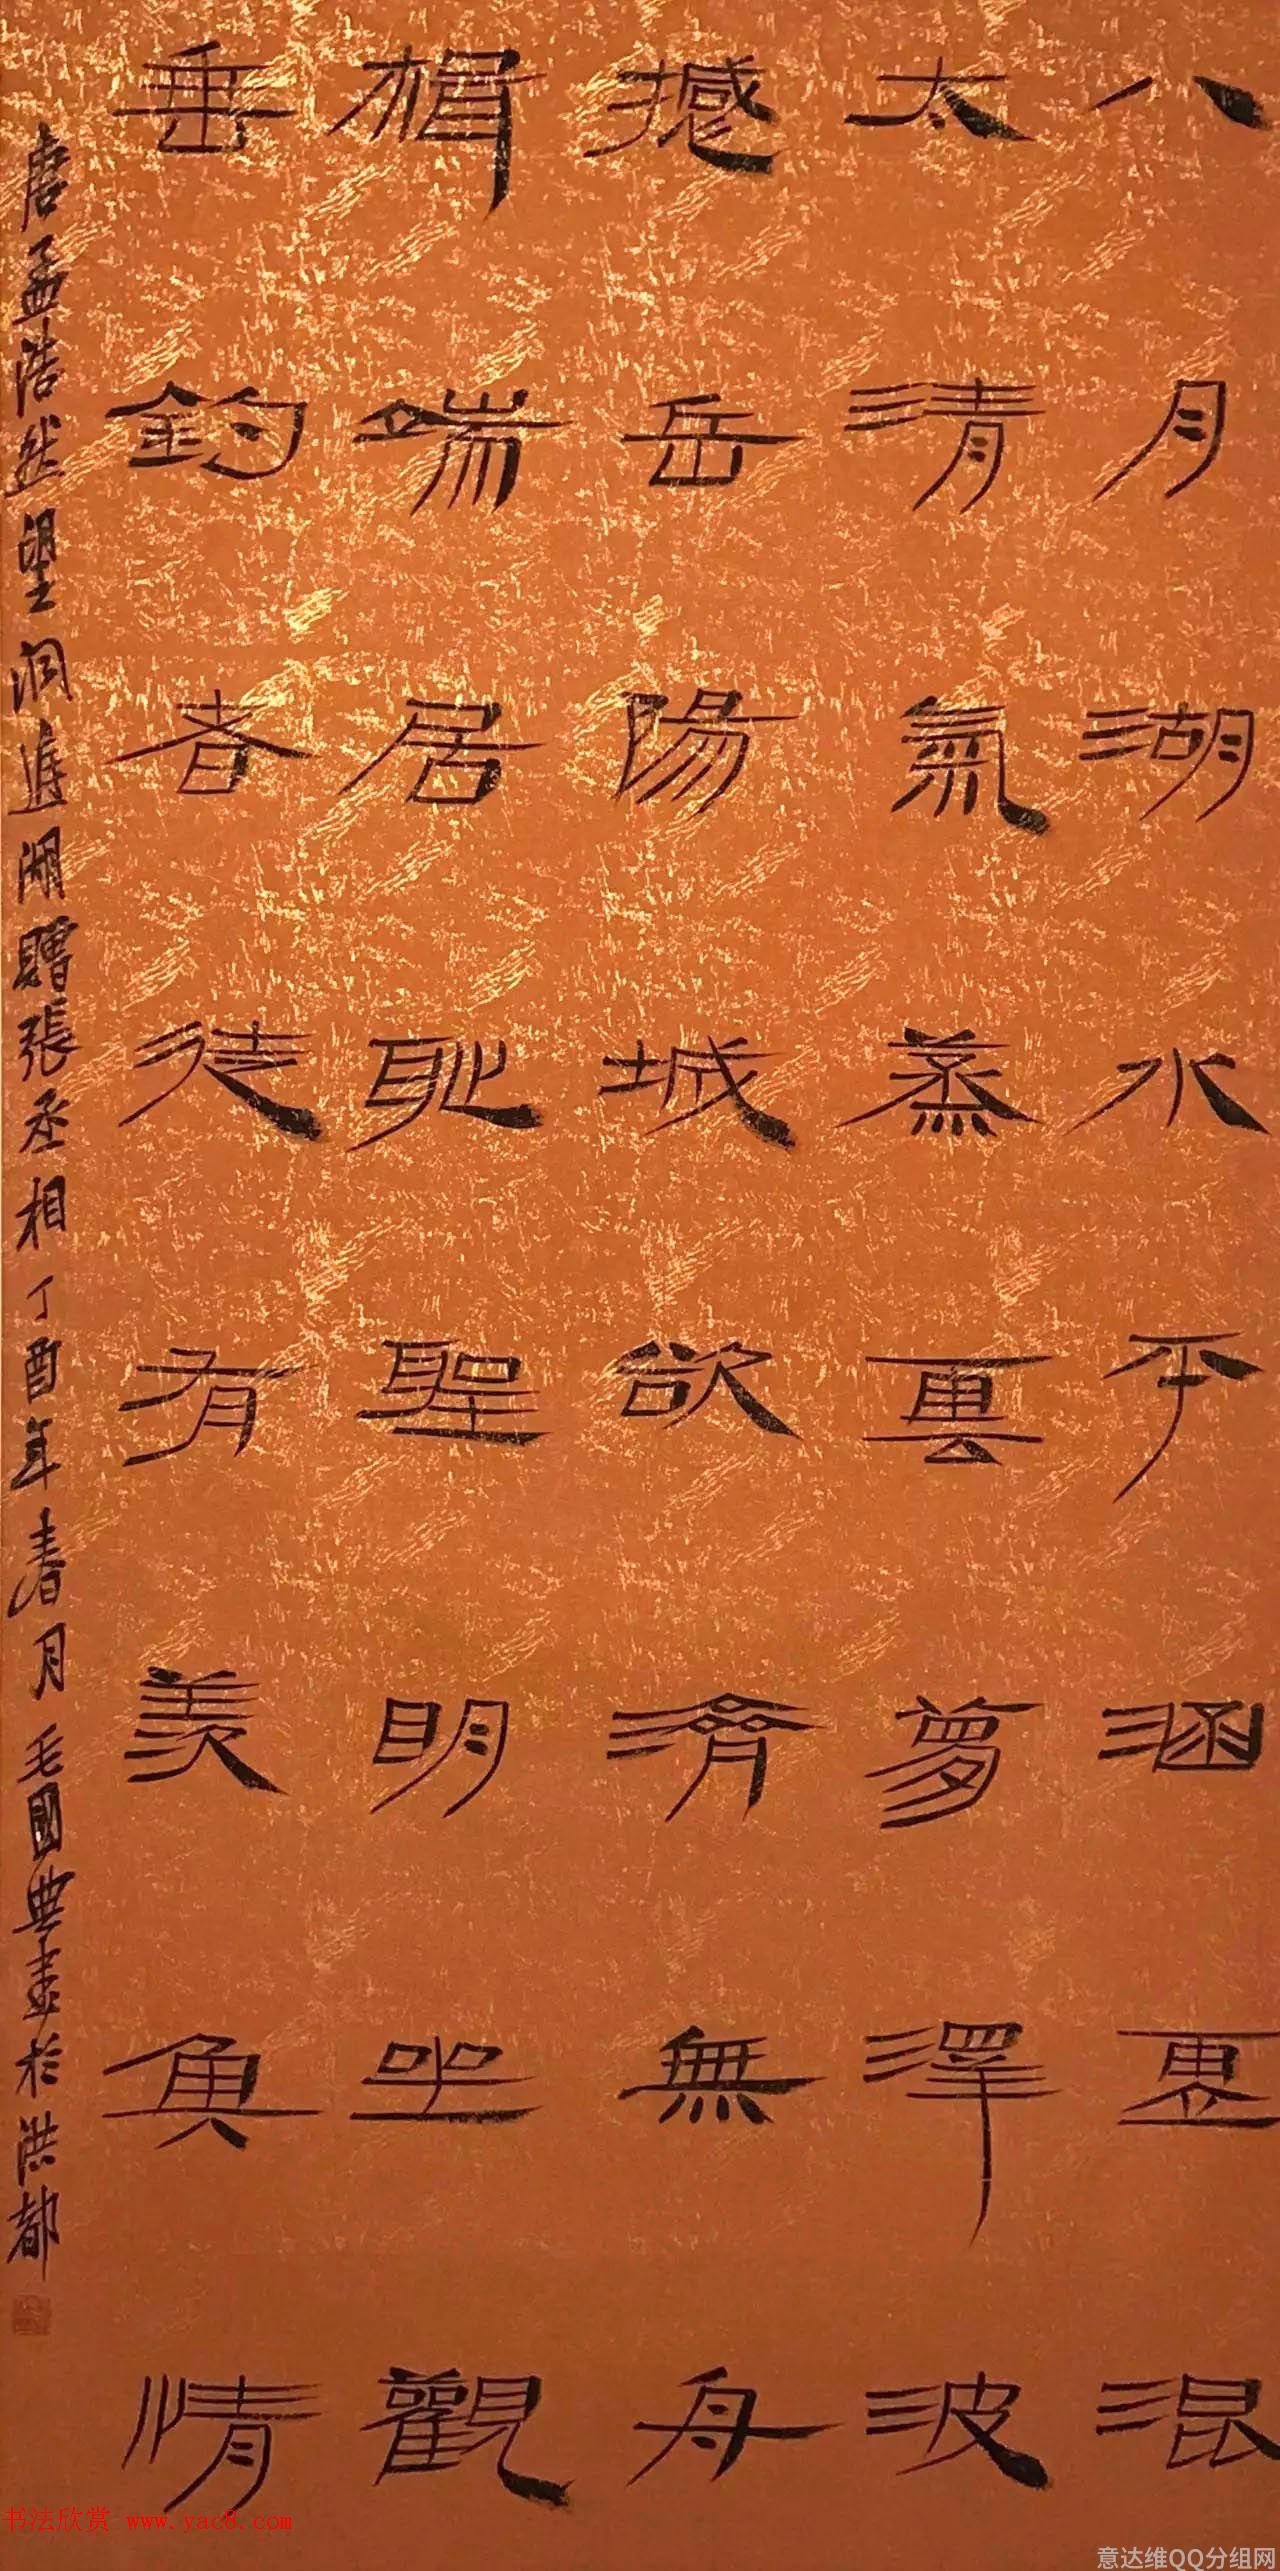 八月湖水平涵虛混
太清氣蒸雲夢澤波
撼岳陽城欲濟無舟
楫端居恥聖明坐觀
垂釣者徒有羨魚情
唐孟浩然望洞庭湖贈張丞相丁酉年春月毛國典書於洪都
书法欣赏 www.yac8.com
意达维QQ分组网